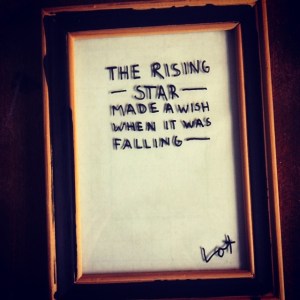 THE RISING
— STAR —
MADE A WISH
WHEN IT WAS
FALLING —